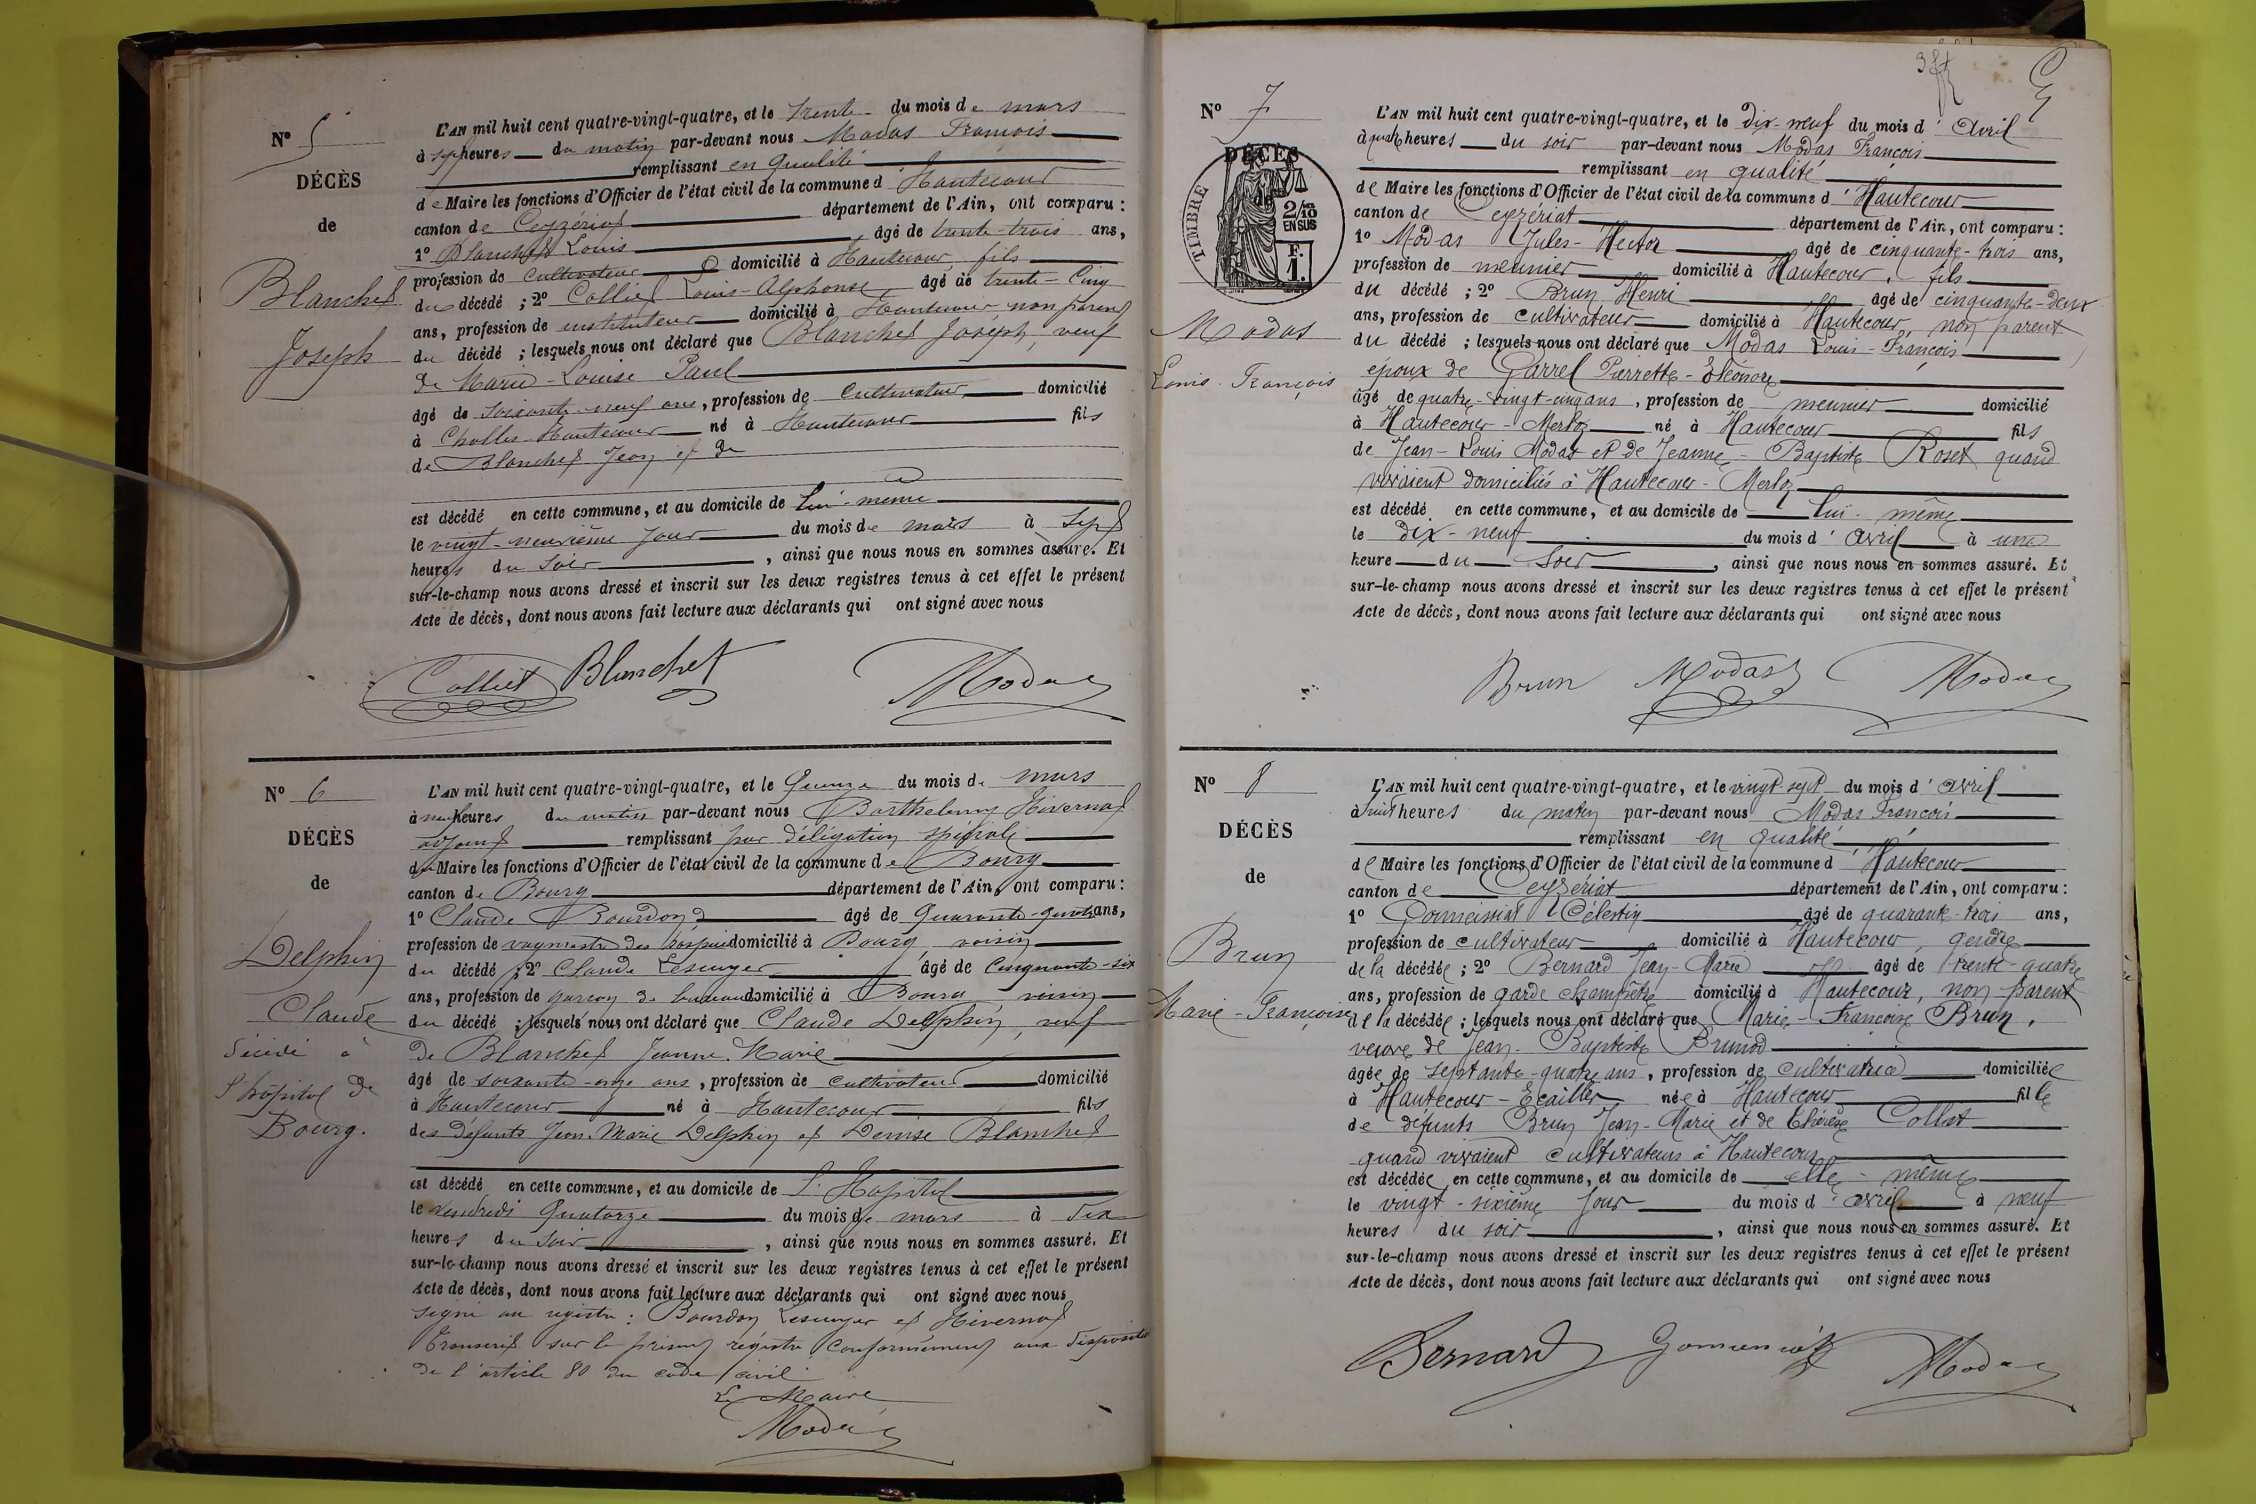 N° 5
DÉCÈS
de
Blanchet
Joseph
L'AN mil huit cent quatre-vingt-quatre, et le trente du mois de mars
à sept heures du matin par-devant nous Modas François
remplissant en qualité
de Maire les fonctions d'Officier de l'état civil de la commune d'Hautecour
canton de Ceyzériat département de l'Ain, ont comparu :
1° Blanchet Louis âgé de trente-trois ans,
profession de cultivateur domicilié à Hautecour fils
du décédé ; 2° Colliet Louis-Alphonse âgé de trente-cinq
ans, profession de instituteur domicilié à Hautecour non parent
du décédé ; lesquels nous ont déclaré que Blanchet Joseph, veuf
de Marie-Louise Paul
âgé de soixante-neuf ans, profession de cultivateur domicilié
à Challes-Hautecour né à Hautecour fils
de Blanchet Jean et de
est décédé en cette commune, et au domicile de lui-même
le vingt-neuvième jour du mois de mars à sept
heures du soir, ainsi que nous nous en sommes assuré. Et
sur-le-champ nous avons dressé et inscrit sur les deux registres tenus à cet effet le présent
Acte de décès, dont nous avons fait lecture aux déclarants qui ont signé avec nous
Colliet Blanchet Modas
N° 6
DÉCÈS
de
Delphin
Claude
décédé à
l'hôpital de
Bourg.
L'AN mil huit cent quatre-vingt-quatre, et le quinze du mois de mars
à neuf heures du matin par-devant nous Barthelemy Hivernat
adjoint remplissant par délégation spéciale
du Maire les fonctions d'Officier de l'état civil de la commune de Bourg
canton de Bourg département de l'Ain, ont comparu :
1° Claude Bourdon âgé de quarante-quatre ans,
profession de vaguemestre des hospices domicilié à Bourg, voisin
du décédé ; 2° Claude Lescuyer âgé de cinquante-six
ans, profession de garçon de bureau domicilié à Bourg voisin
du décédé ; lesquels nous ont déclaré que Claude Delphin, veuf
de Blanchet Jeanne-Marie
âgé de soixante-onze ans, profession de cultivateur domicilié
à Hautecour né à Hautecour fils
des défunts Jean-Marie Delphin et Denise Blanchet
est décédé en cette commune, et au domicile de l'Hôpital
le vendredi quatorze du mois de mars à dix
heures du soir, ainsi que nous nous en sommes assuré. Et
sur-le-champ nous avons dressé et inscrit sur les deux registres tenus à cet effet le présent
Acte de décès, dont nous avons fait lecture aux déclarants qui ont signé avec nous
signé au registre : Bourdon Lescuyer et Hivernat
Transcrit sur le présent régistre conformément aux dispositions
de l'article 80 du code civil
Le Maire
Modas
N° 7
DÉCÈS
de
TIMBRE
2/10 EN SUS
F. 1.
Modas
Louis-François
L'AN mil huit cent quatre-vingt-quatre, et le dix-neuf du mois d'avril
à quatre heures du soir par-devant nous Modas François
remplissant en qualité
de Maire les fonctions d'Officier de l'état civil de la commune d'Hautecour
canton de Ceyzériat département de l'Ain, ont comparu :
1° Modas Jules-Hector âgé de cinquante-trois ans,
profession de meunier domicilié à Hautecour, fils
du décédé ; 2° Brun Henri âgé de cinquante-deux
ans, profession de cultivateur domicilié à Hautecour, non parent
du décédé ; lesquels nous ont déclaré que Modas Louis-François
époux de Garrel Pierrette-Eléonore
âgé de quatre-vingt-cinq ans, profession de meunier domicilié
à Hautecour-Merloz né à Hautecour fils
de Jean-Louis Modas et de Jeanne-Baptiste Roset quand
vivaient domiciliés à Hautecour-Merloz
est décédé en cette commune, et au domicile de lui-même
le dix-neuf du mois d'avril à une
heure du soir, ainsi que nous nous en sommes assuré. Et
sur-le-champ nous avons dressé et inscrit sur les deux registres tenus à cet effet le présent
Acte de décès, dont nous avons fait lecture aux déclarants qui ont signé avec nous
Brun Modas Modas
N° 8
DÉCÈS
de
Brun
Marie-Françoise
L'AN mil huit cent quatre-vingt-quatre, et le vingt-sept du mois d'avril
à huit heures du matin par-devant nous Modas François
remplissant en qualité
de Maire les fonctions d'Officier de l'état civil de la commune d'Hautecour
canton de Ceyzériat département de l'Ain, ont comparu :
1° Célestin âgé de quarante-trois ans,
profession de cultivateur domicilié à Hautecour, gendre
de la décédée ; 2° Bernard Jean-Marie âgé de trente-quatre
ans, profession de garde champêtre domicilié à Hautecour, non parent
de la décédée ; lesquels nous ont déclaré que Marie-Françoise Brun,
veuve de Jean-Baptiste Brunod
âgée de septante-quatre ans, profession de cultivatrice domiciliée
à Hautecour-Ecaillex née à Hautecour fille
de défunts Brun Jean-Marie et de Thérèse Collet
quand vivaient cultivateurs à Hautecour
est décédée en cette commune, et au domicile de elle-même
le vingt-sixième jour du mois d'avril à neuf
heures du soir, ainsi que nous nous en sommes assuré. Et
sur-le-champ nous avons dressé et inscrit sur les deux registres tenus à cet effet le présent
Acte de décès, dont nous avons fait lecture aux déclarants qui ont signé avec nous
Bernard Modas